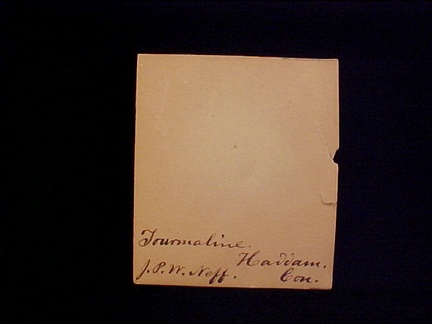 Tourmaline.
Haddam.
J. P. W. Neff. Con.